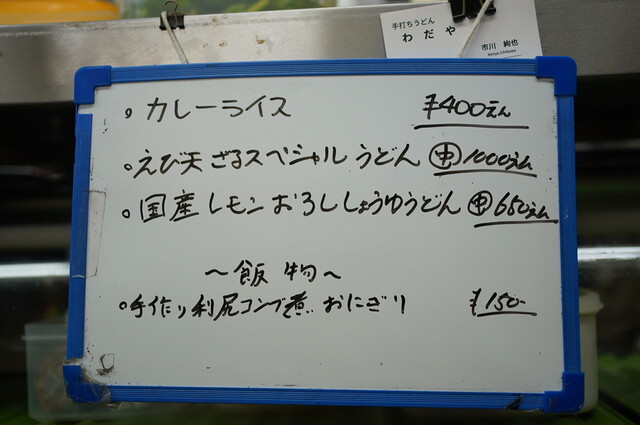 手打ちうどん
わだや
市川 絢也
Kenya Ichikawa
カレーライス ¥400えん
えび天ざるスペシャルうどん ㊥1000えん
国産レモンおろししょうゆうどん ㊥650えん
～飯物～
手作り利尻コンブ煮おにぎり ¥150-